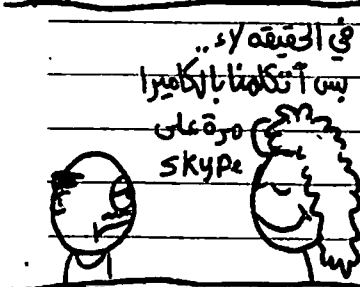 في الحقيقه لاء..
بس اتكلمنا بالكاميرا
مرة على
skype